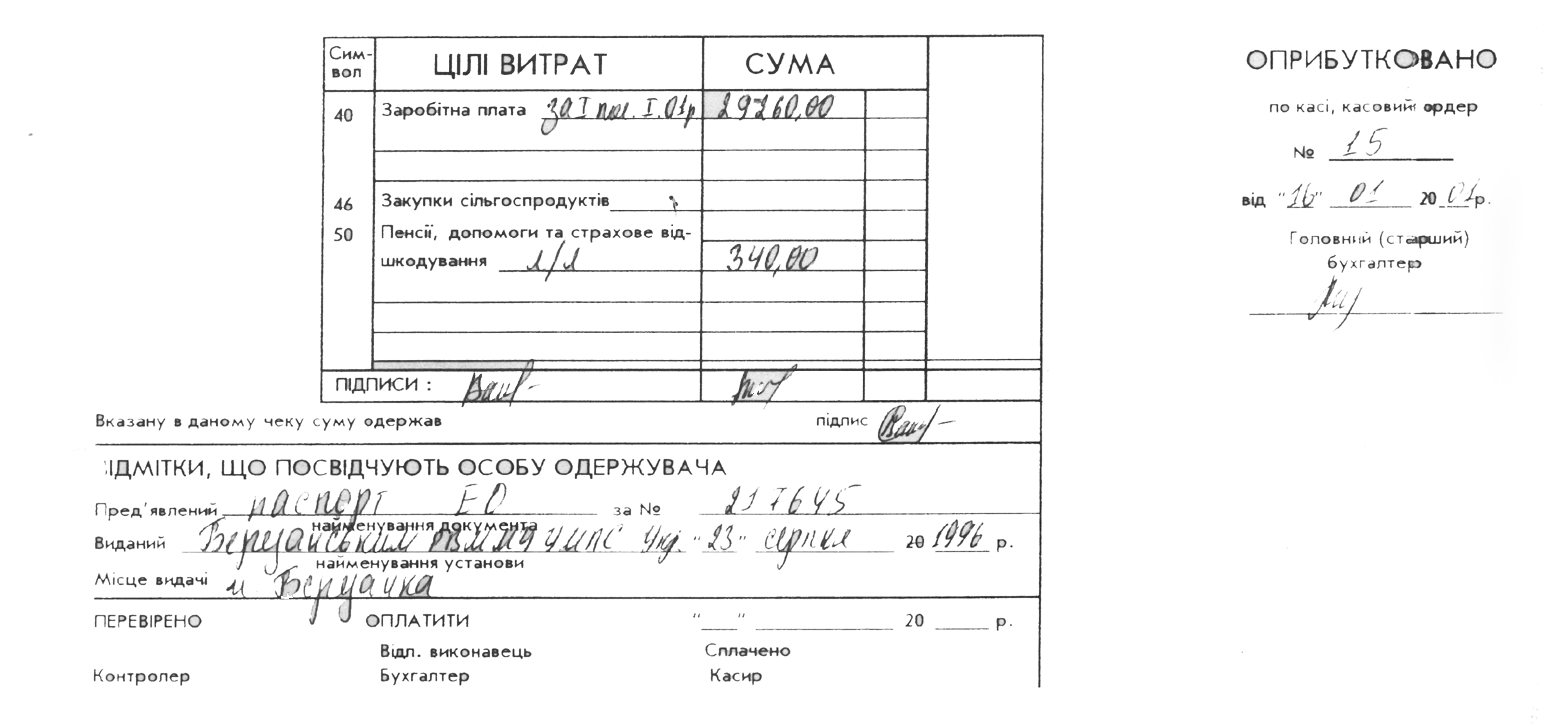 Сим-
вол ЦІЛІ ВИТРАТ СУМА
40 Заробітна плата за I пол. I.01р 29260,00
46 Закупки сільгоспродуктів
50 Пенсії, допомоги та страхове від-
шкодування л/л 340,00
ПІДПИСИ :
Вказану в даному чеку суму одержав підпис
ІДМІТКИ, ЩО ПОСВІДЧУЮТЬ ОСОБУ ОДЕРЖУВАЧА
Пред'явлений паспорт ЕО за № 217645
найменування документа
Виданий Укр. "23" серпня 20 1996 р.
найменування установи
Місце видачі м
ПЕРЕВІРЕНО ОПЛАТИТИ "___" 20 р.
Відп. виконавець Сплачено
Контролер Бухгалтер Касир
ОПРИБУТКОВАНО
по касі, касовий ордер
№ 15
від "16" 01 20 01р.
Головний (старший)
бухгалтер